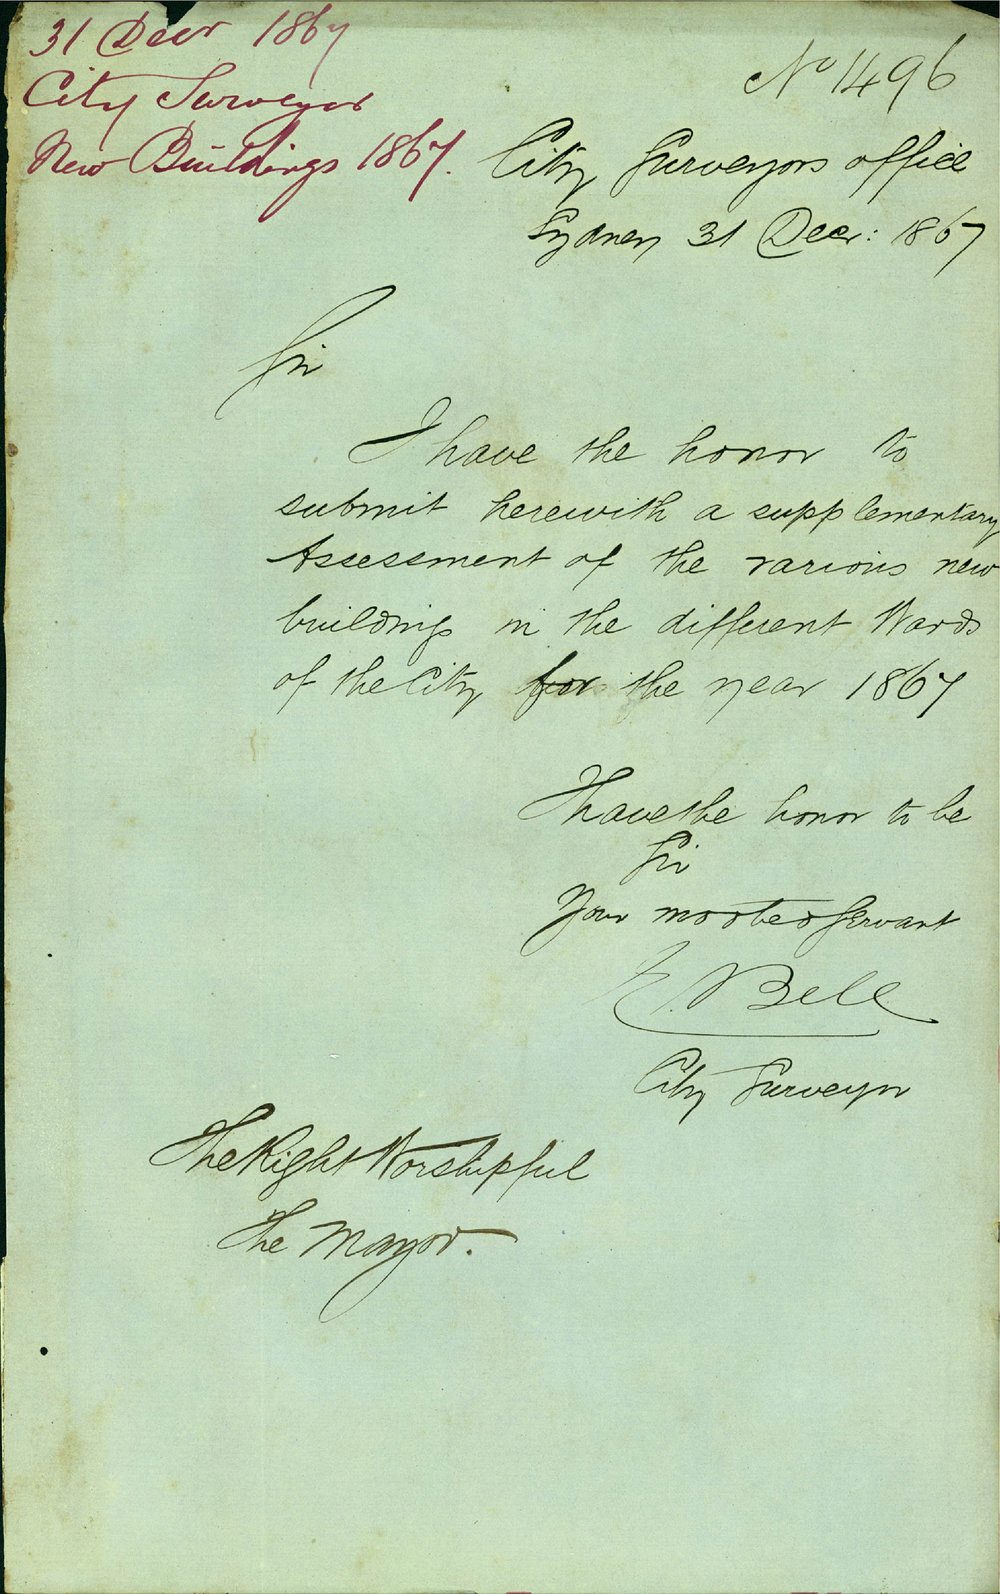 31 Decr 1867
City Surveyor
New Buildings 1867.
No 1496
City Surveyors office
Sydney 31 Decr: 1867
Sir
I have the honor to
submit herewith a supplementary
Assessment of the various new
buildings in the different Wards
of the City for the year 1867
I have the honor to be
Sir
Your most obed Servant
E. Bell
City Surveyor
The Right Worshipful
The Mayor.